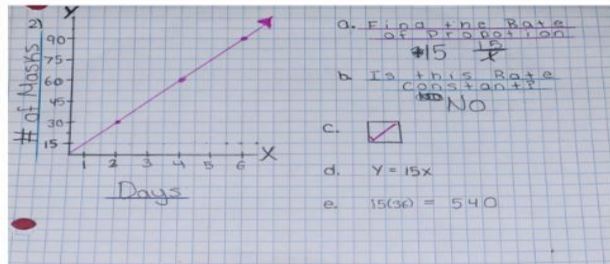 2) Y
# of Masks
90
75
60
45
30
15
1 2 3 4 5 6 X
Days
a. Find the Rate
of Propotion
15 15/x
b. Is this Rate
constant?
No
c.
d. Y = 15x
e. 15(36) = 540